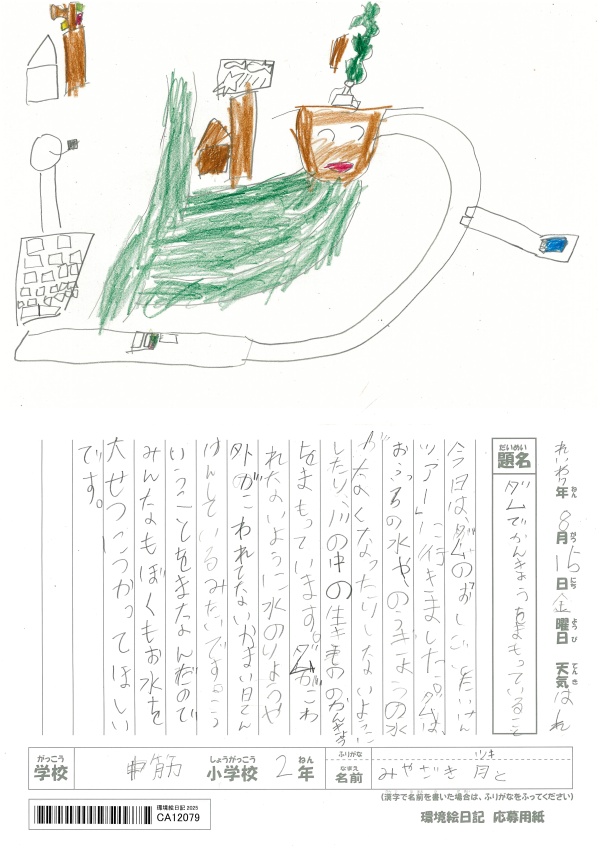 れいわ7年8月15日金曜日 天気はれ
ねん
がつ
にち
ようび
てんき
だいめい
題名
ダムでかんきょうをまもっていること
今日は、ダムのおしごとたいけん
ツアーに行きました。ダムは、
おうちの水やのうぎょうの水
がなくなったりしないように
したり、川の中の生きもののかんきょう
をまもっています。ダムがこわ
れないように水のりょうや
外がこわれてないかまい日てん
けんしているみたいです。こう
いうことをまなんだので
みんなもぼくもお水を
大せつにつかってほしい
です。
がっこう
学校
中筋
しょうがっこう
小学校
2
ねん
年
ふりがな
ツキ
なまえ
名前
みやざき 月と
(漢字で名前を書いた場合は、ふりがなをふってください)
環境絵日記 2025
CA12079
環境絵日記 応募用紙